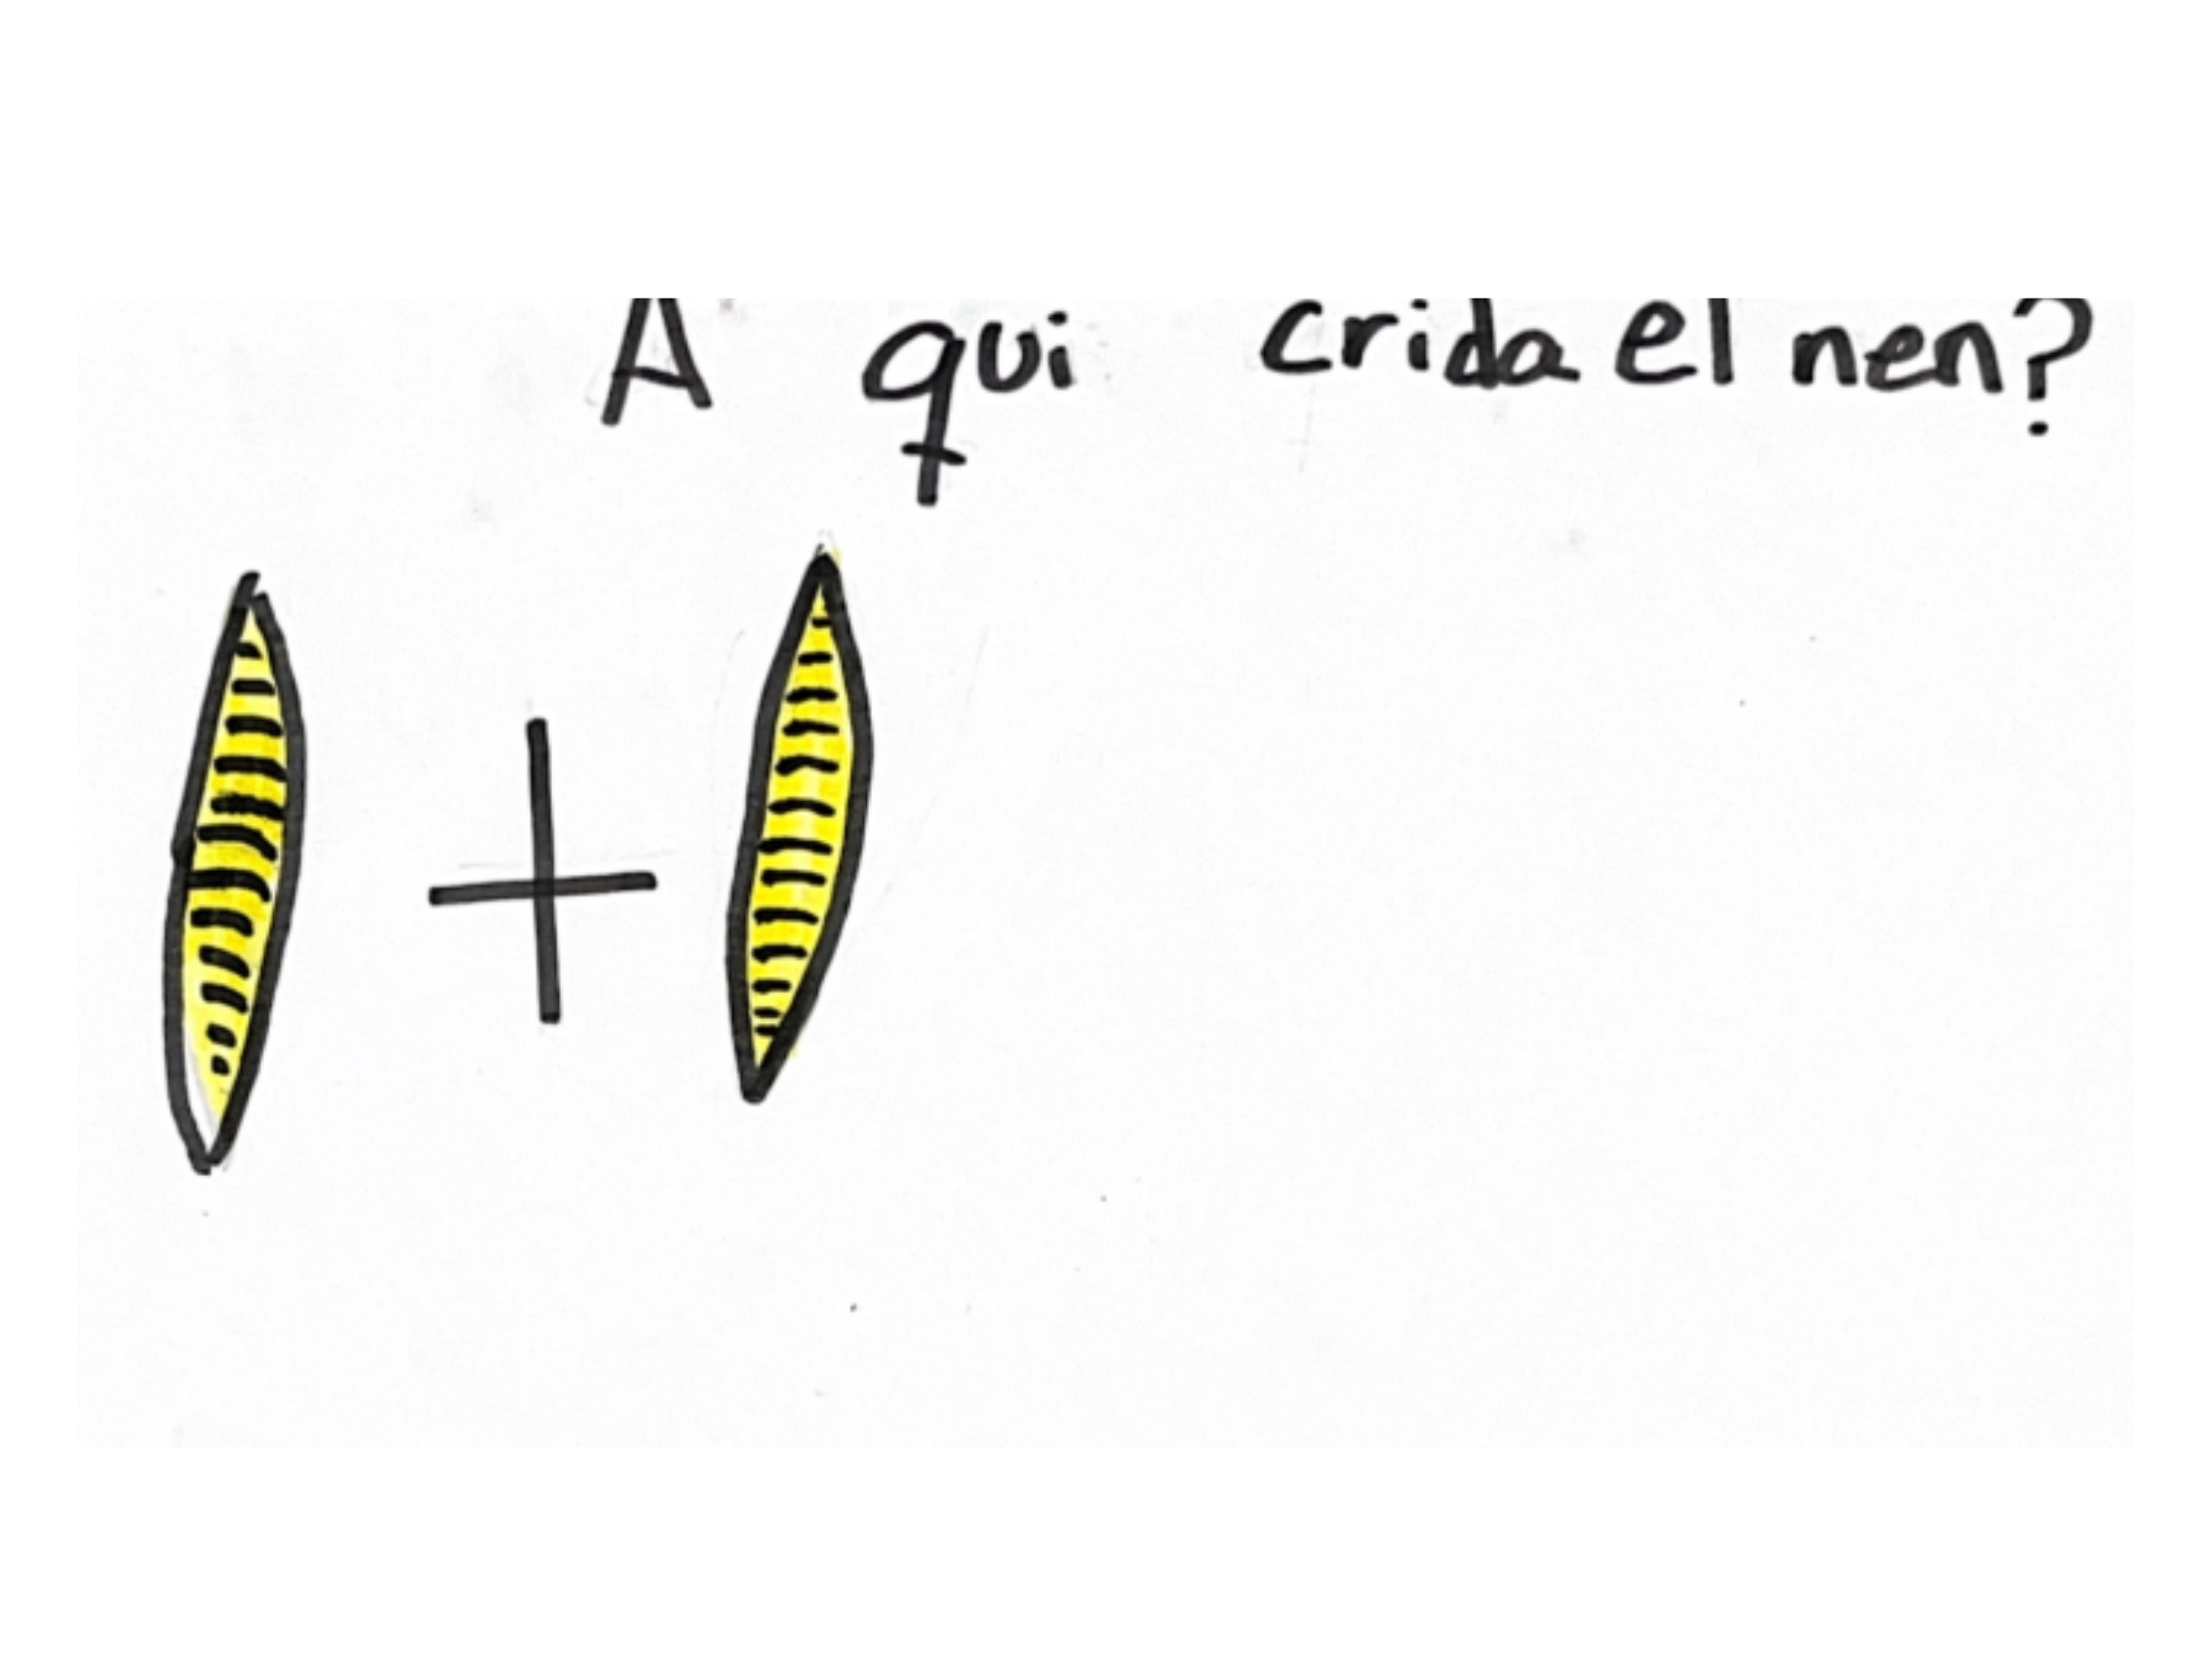 A qui crida el nen?
+